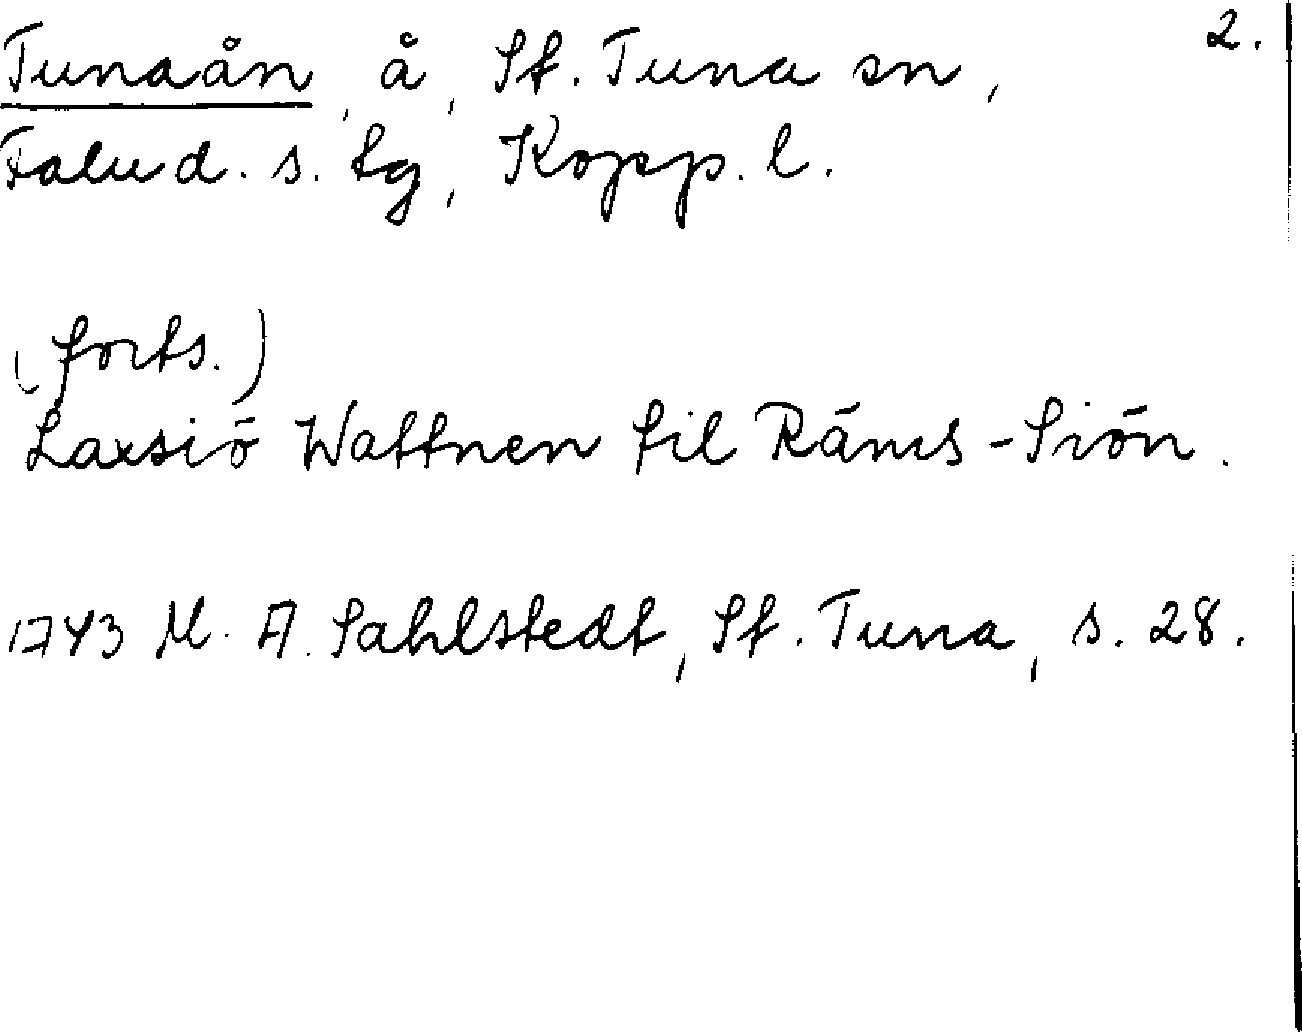 Tunaån, å, St. Tuna sn, 2.
Falu d. s. tg, Kopp. l.
(forts.)
Laxsiö Wattnen til Räms-Siön.
1743 M. A. Sahlstedt, St. Tuna, s. 28.